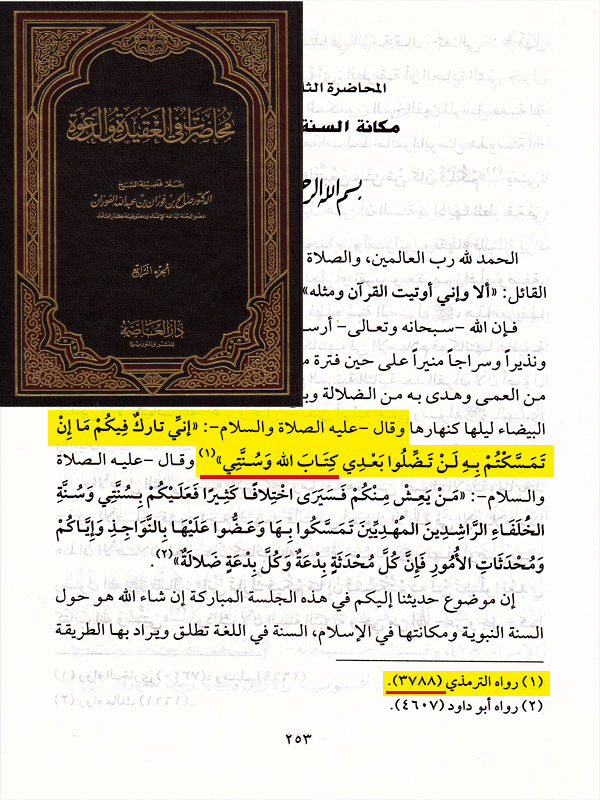 محاضرات في العقيدة والدعوة
بقلم فضيلة الشيخ
الدكتور صالح بن فوزان بن عبد الله الفوزان
عضو اللجنة الدائمة للإفتاء وعضو هيئة كبار العلماء
الجزء الرابع
دار العاصمة
للنشر والتوزيع
المحاضرة الثا
مكانة السنة
بسم الله الرحـ
الحمد لله رب العالمين، والصلاة
القائل: «ألا وإني أوتيت القرآن ومثله»
فإن الله -سبحانه وتعالى- أرسـ
ونذيراً وسراجاً منيراً على حين فترة م
من العمى وهدى به من الضلالة وب
البيضاء ليلها كنهارها وقال -عليه الصلاة والسلام-: «إنِّي تاركٌ فِيكُمْ مَا إِنْ
تَمَسَّكْتُمْ بِهِ لَنْ تَضِلُّوا بَعْدِي كِتَابَ الله وَسُنَّتِي»(١) وقال -عليه الصلاة
والسلام-: «مَنْ يَعِشْ مِنْكُمْ فَسَيَرَى اخْتِلافًا كَثِيرًا فَعَلَيْكُمْ بِسُنَّتِي وَسُنَّةِ
الخُلَفَاءِ الرَّاشِدِينَ المَهْدِيِّينَ تَمَسَّكُوا بِهَا وَعَضُّوا عَلَيْهَا بِالنَّوَاجِذِ وَإِيَّاكُمْ
وَمُحْدَثَاتِ الأُمُورِ فَإِنَّ كُلَّ مُحْدَثَةٍ بِدْعَةٌ وَكُلَّ بِدْعَةٍ ضَلالَةٌ»(٢).
إن موضوع حديثنا إليكم في هذه الجلسة المباركة إن شاء الله هو حول
السنة النبوية ومكانتها في الإسلام، السنة في اللغة تطلق ويراد بها الطريقة
(١) رواه الترمذي (٣٧٨٨).
(٢) رواه أبو داود (٤٦٠٧).
٢٥٣